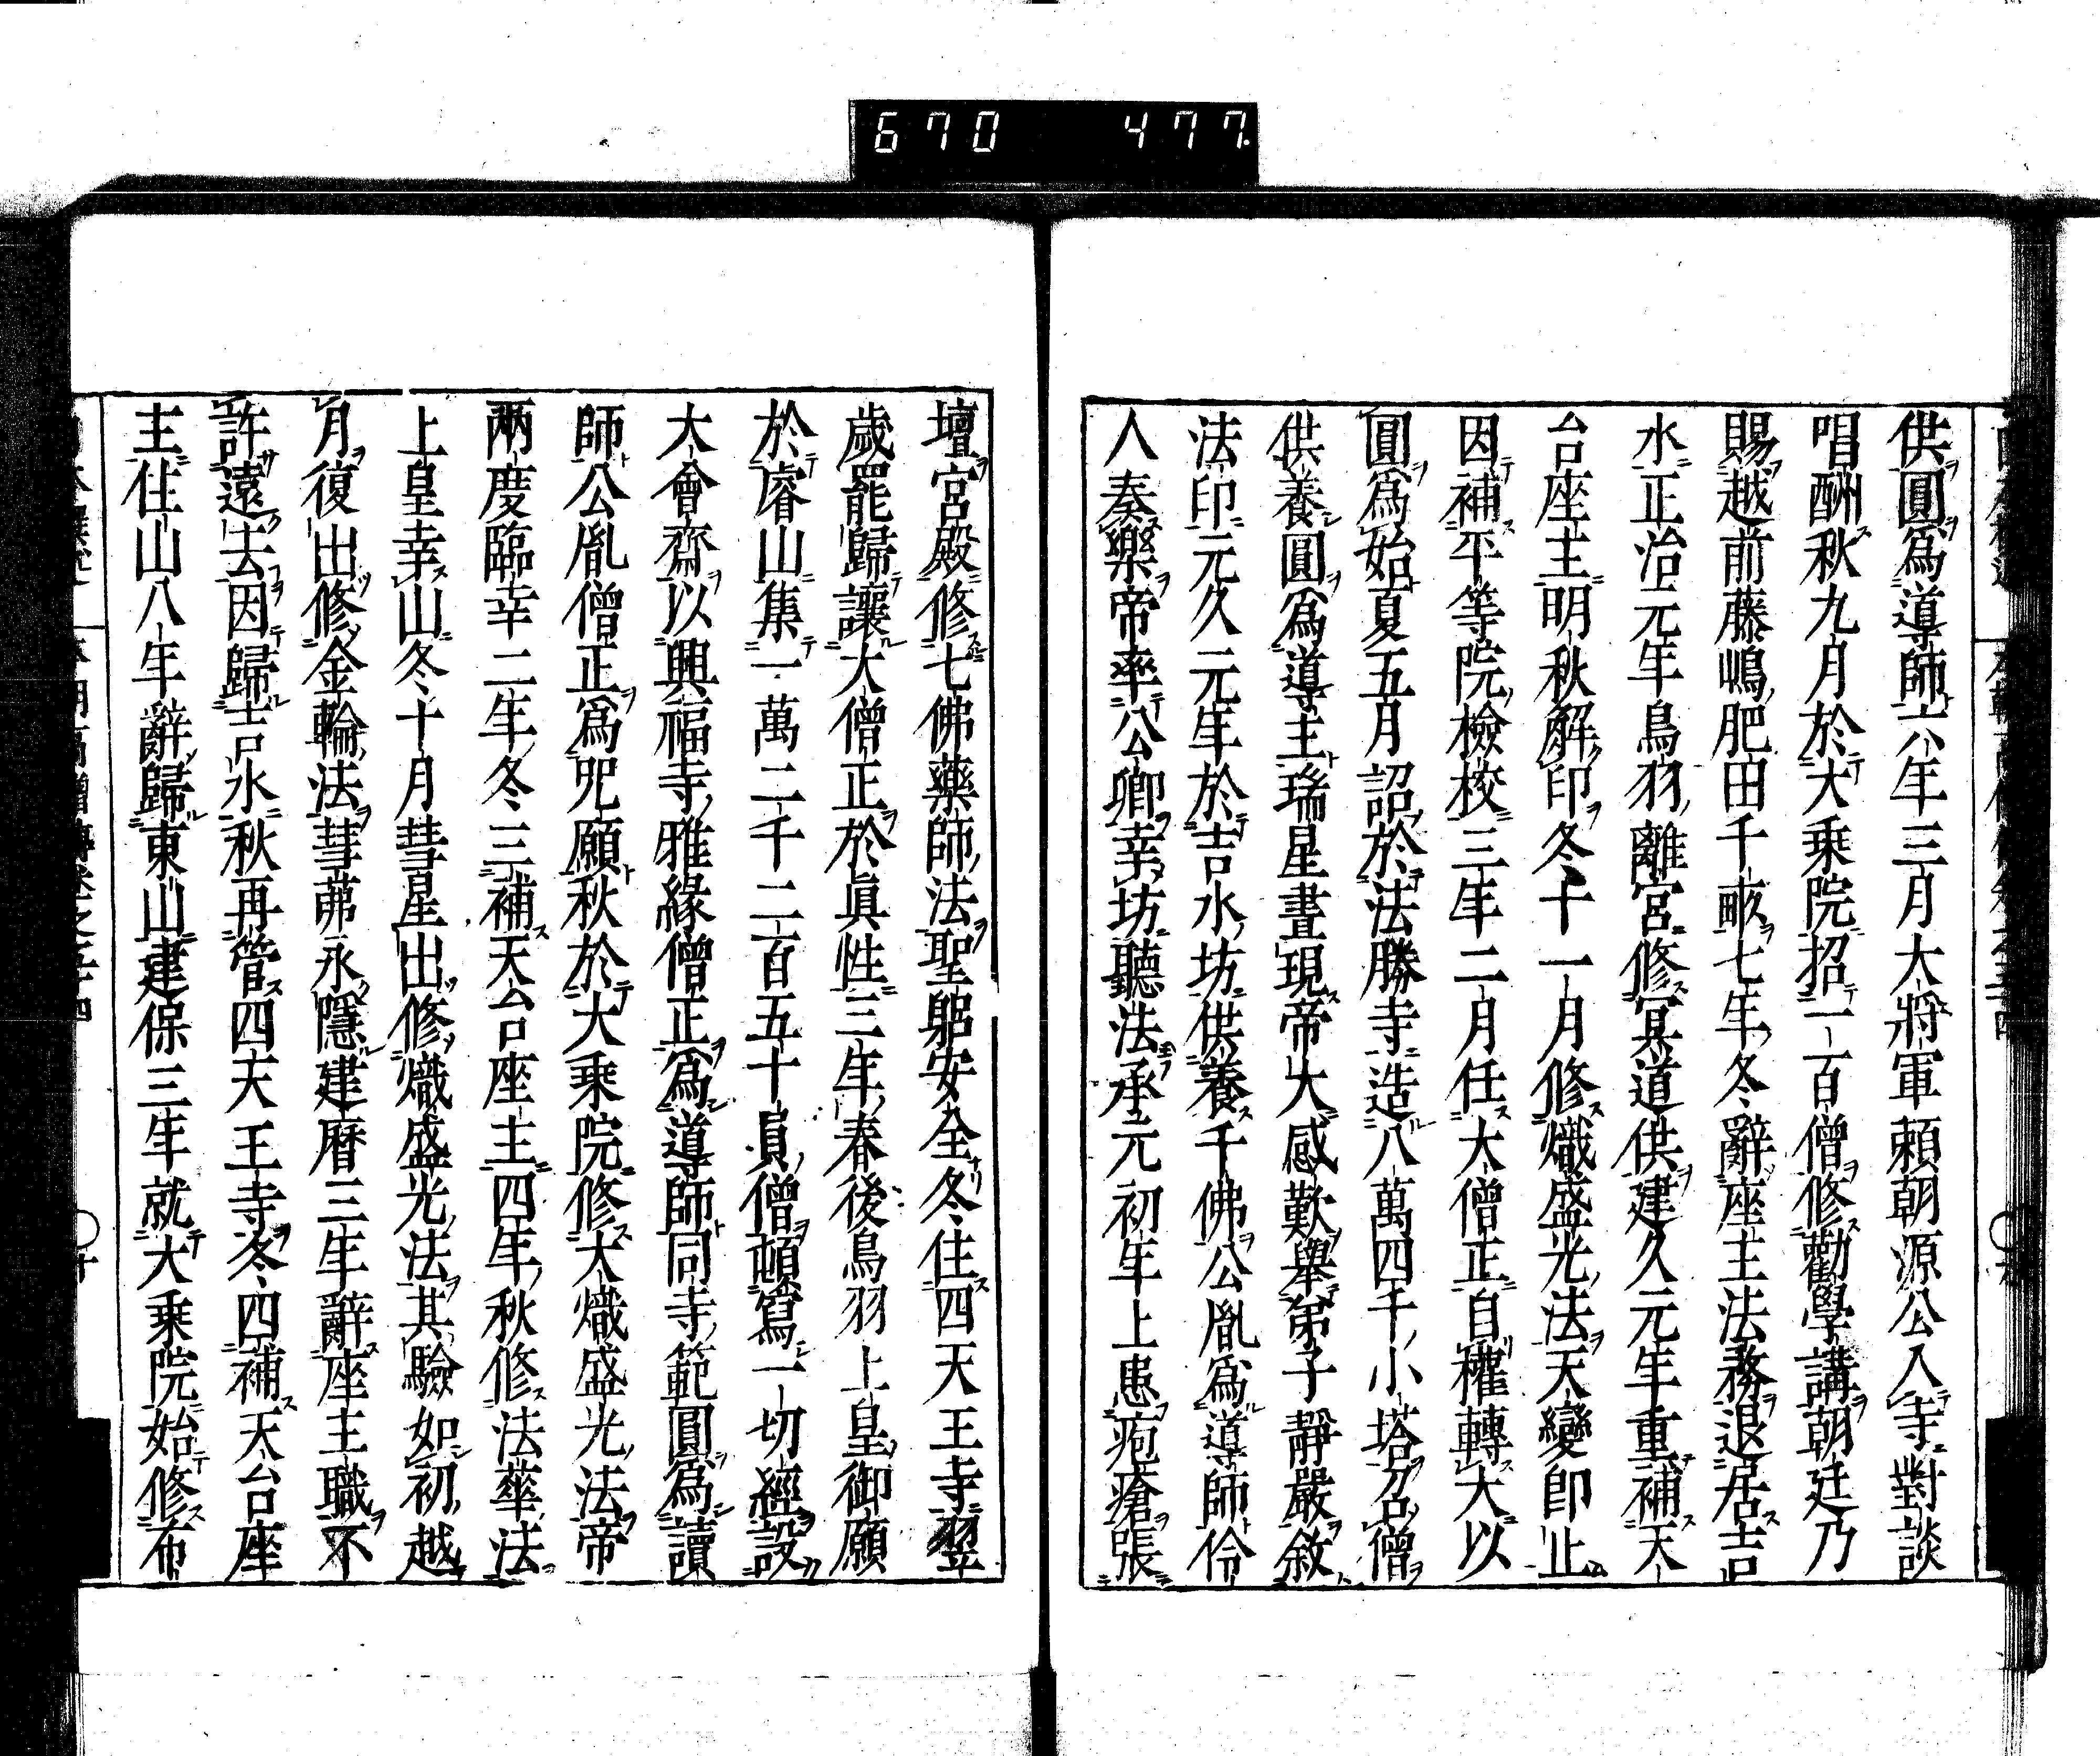 670 477
供圓爲導師六年三月大將軍頼朝源公入寺對談
唱酬秋九月於大乗院招一百僧修勸學講朝廷乃
賜越前藤嶋肥田千畝七年冬辭座主法務退居吉
水正治元年鳥羽離宮修冥道供建久元年重補天
台座主明秋解印冬十一月修熾盛光法天變即止
因補平等院檢校三年二月任大僧正自權轉大以
圓爲始夏五月詔於法勝寺造八萬四千小塔召僧
供養圓爲導主瑞星晝現帝大感歎舉弟子靜嚴敘
法印元久元年於吉水坊供養千佛公胤爲導師伶
人奏樂帝率公卿幸坊聽法承元初年上患疱瘡張
壇宮殿修七佛藥師法聖躬安全冬住四天王寺翌
歳罷歸讓大僧正於眞性三年春後鳥羽上皇御願
於睿山集一萬二千二百五十員僧頓寫一切經設
大會齋以興福寺雅緣僧正爲導師同寺範圓爲讀
師公胤僧正爲咒願秋於大乗院修大熾盛光法帝
兩度臨幸二年冬三補天台座主四年秋修法華法
上皇幸山冬十月彗星出修熾盛光法其驗如初越
月復出修金輪法彗茀永隱建曆三年辭座主職不
許遠去因歸吉水秋再管四天王寺冬四補天台座
主住山八年辭歸東山建保三年就大乗院始修布